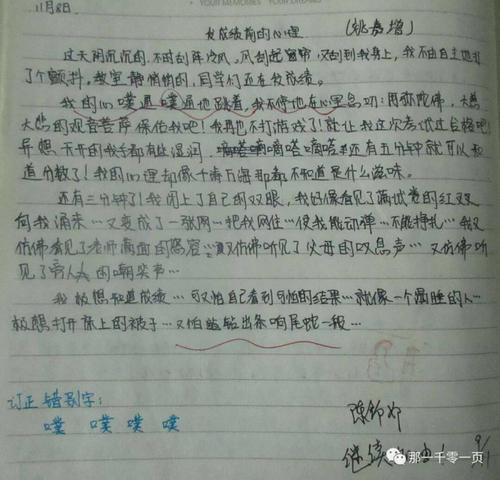 YOUR MEMORIES YOUR DREAM
11月8日
发成绩前的心理 (姚嘉增)
过天阴沉沉的,不时刮阵冷风,风刮起窗帘,又刮到我身上,我不由自主地打
了个颤抖,教室静悄悄的,同学们还在发成绩。
我的心噗通噗通地跳着,我不停地在心里念叨:阿弥陀佛,大慈
大悲的观音菩萨保佑我吧!我再也不打游戏了!就让我这次考试过合格吧
异想天开的我手都有些湿润,嘀嗒嘀嗒还有五分钟就可以知
道分数了!我的心理却像千涛万海那都不知道是什么滋味。
还有三分钟了!我闭上了自己的双眼,我好像看见了满试卷的红叉
向我涌来…又变成了一张网…把我网住…使我能动弹…不能挣扎…我又
仿佛看见了老师满面的怒容…我又仿佛听见了父母的叹息声…又仿佛听
见了旁人的嘲笑声…
我极想知道成绩…可又怕自己看到可怕的结果…就像一个渴睡的人…
极想打开床上的被子…又怕钻出条响尾蛇一般…
订正错别字:
噗 噗 噗 噗
继续
9/11
那一千零一页